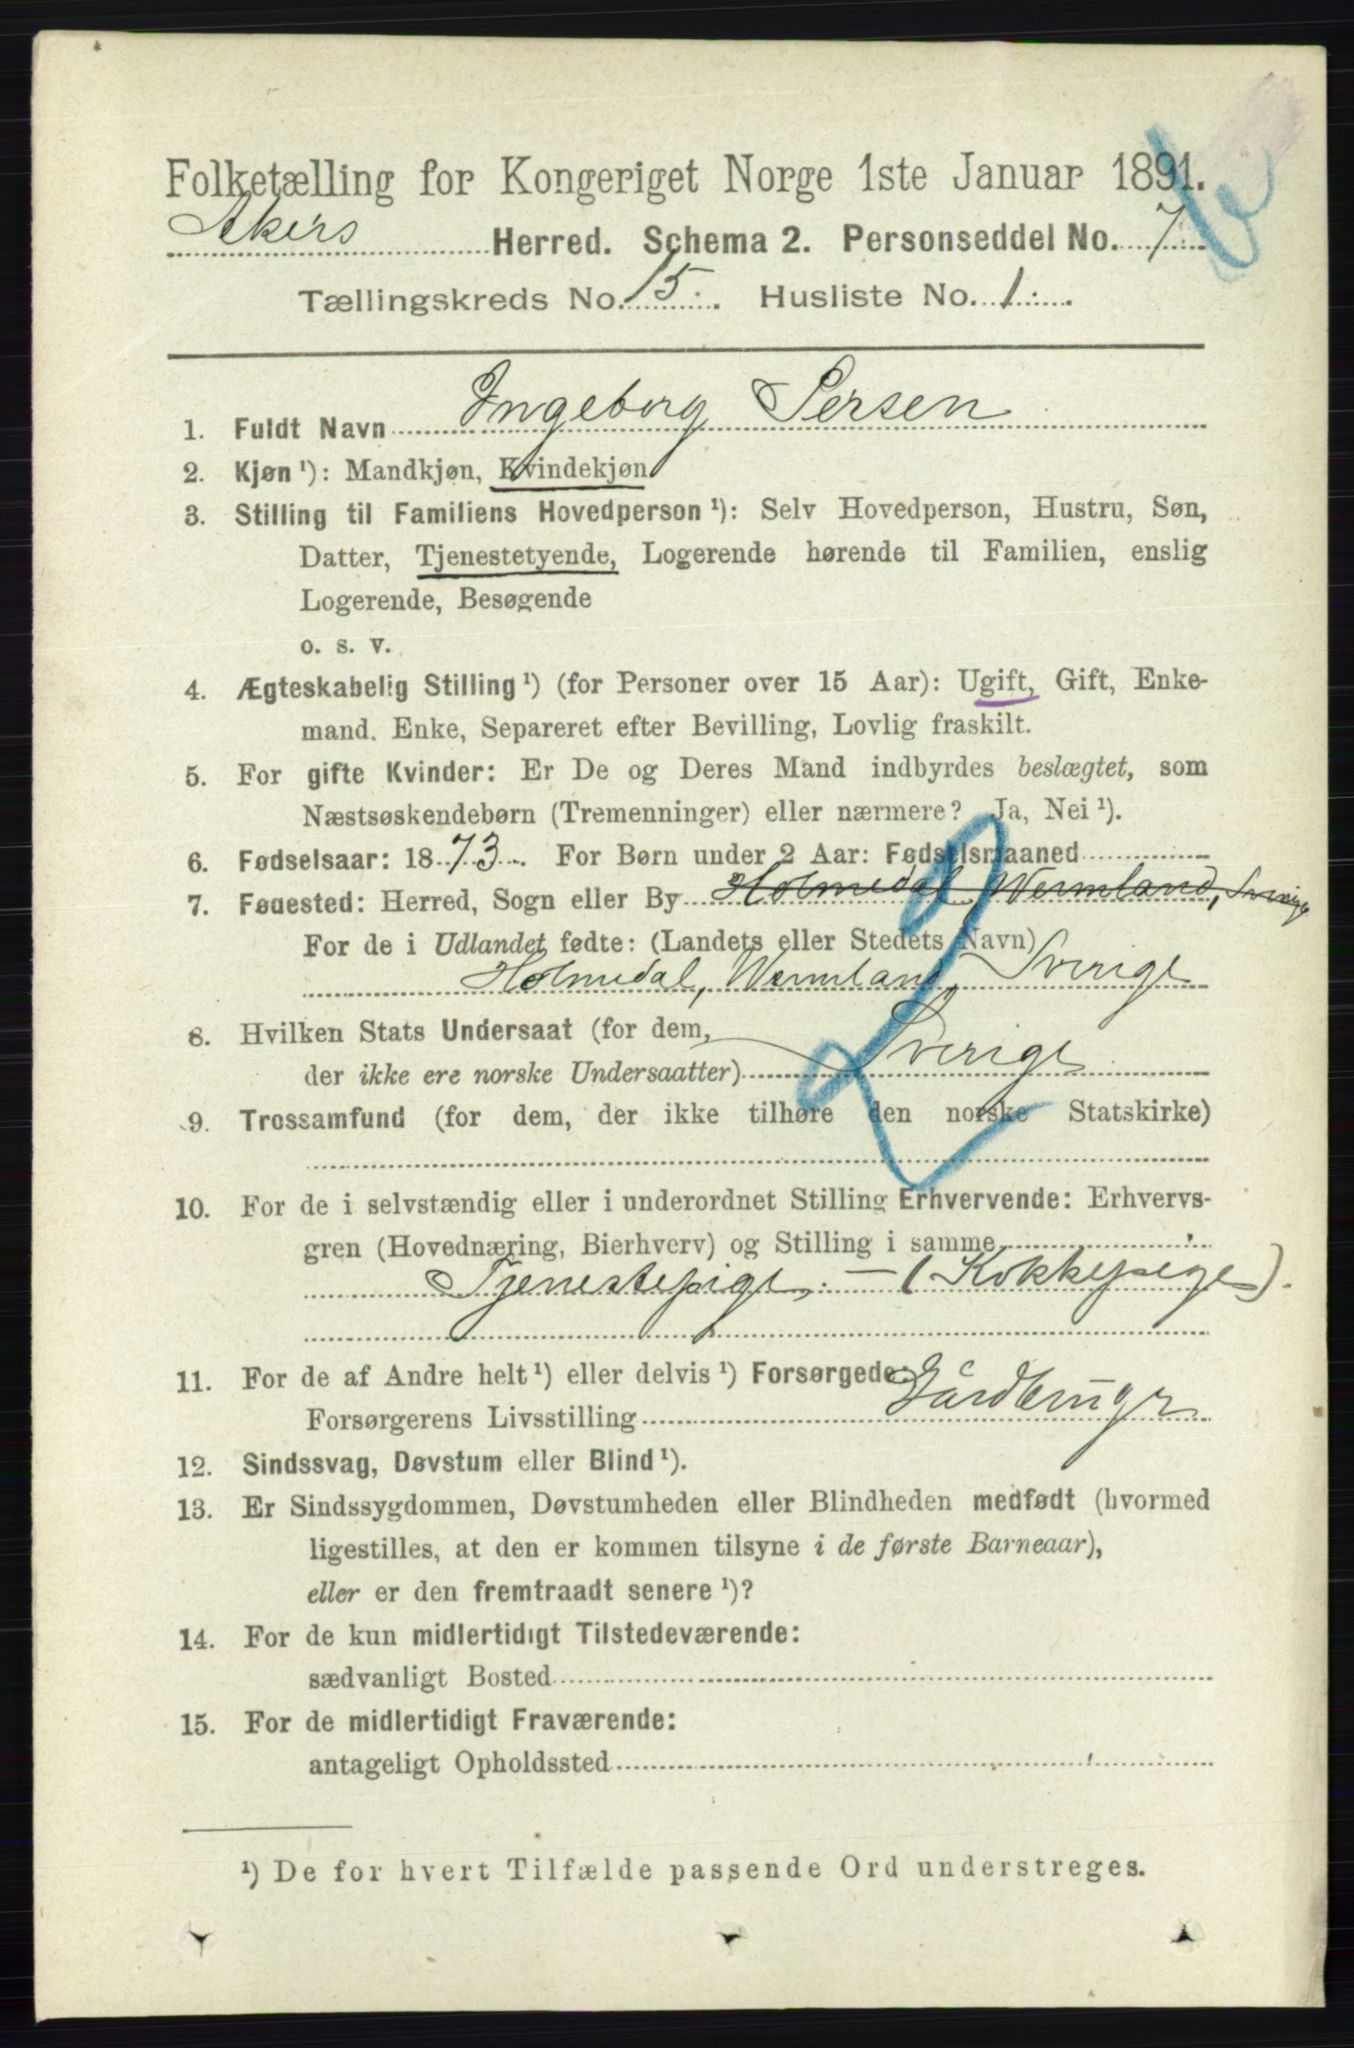 Folketælling for Kongeriget Norge 1ste Januar 1891.
Akers Herred. Schema 2. Personseddel No. 7
Tællingskreds No. 15. Husliste No. 1.
1. Fuldt Navn Ingeborg Persen
2. Kjøn ¹): Mandkjøn, Kvindekjøn
3. Stilling til Familiens Hovedperson ¹): Selv Hovedperson, Hustru, Søn,
Datter, Tjenestetyende, Logerende hørende til Familien, enslig
Logerende, Besøgende
o. s. v.
4. Ægteskabelig Stilling ¹) (for Personer over 15 Aar): Ugift, Gift, Enke-
mand, Enke, Separeret efter Bevilling, Lovlig fraskilt.
5. For gifte Kvinder: Er De og Deres Mand indbyrdes beslægtet, som
Næstsøskendebørn (Tremenninger) eller nærmere? Ja, Nei ¹).
6. Fødselsaar: 1873. For Børn under 2 Aar: Fødselsmaaned
7. Fødested: Herred, Sogn eller By Holmedal Wermland, Sverige
For de i Udlandet fødte: (Landets eller Stedets Navn)
Holmedal, Wermland, Sverige
8. Hvilken Stats Undersaat (for dem,
der ikke ere norske Undersaatter) Sverige
9. Trossamfund (for dem, der ikke tilhøre den norske Statskirke)
10. For de i selvstændig eller i underordnet Stilling Erhvervende: Erhvervs-
gren (Hovednæring, Bierhverv) og Stilling i samme
Tjenestepige. — (Kokkepige).
11. For de af Andre helt ¹) eller delvis ¹) Forsørgede:
Forsørgerens Livsstilling Gårdbruger
12. Sindssvag, Døvstum eller Blind ¹).
13. Er Sindssygdommen, Døvstumheden eller Blindheden medfødt (hvormed
ligestilles, at den er kommen tilsyne i de første Barneaar),
eller er den fremtraadt senere ¹)?
14. For de kun midlertidigt Tilstedeværende:
sædvanligt Bosted
15. For de midlertidigt Fraværende:
antageligt Opholdssted
¹) De for hvert Tilfælde passende Ord understreges.